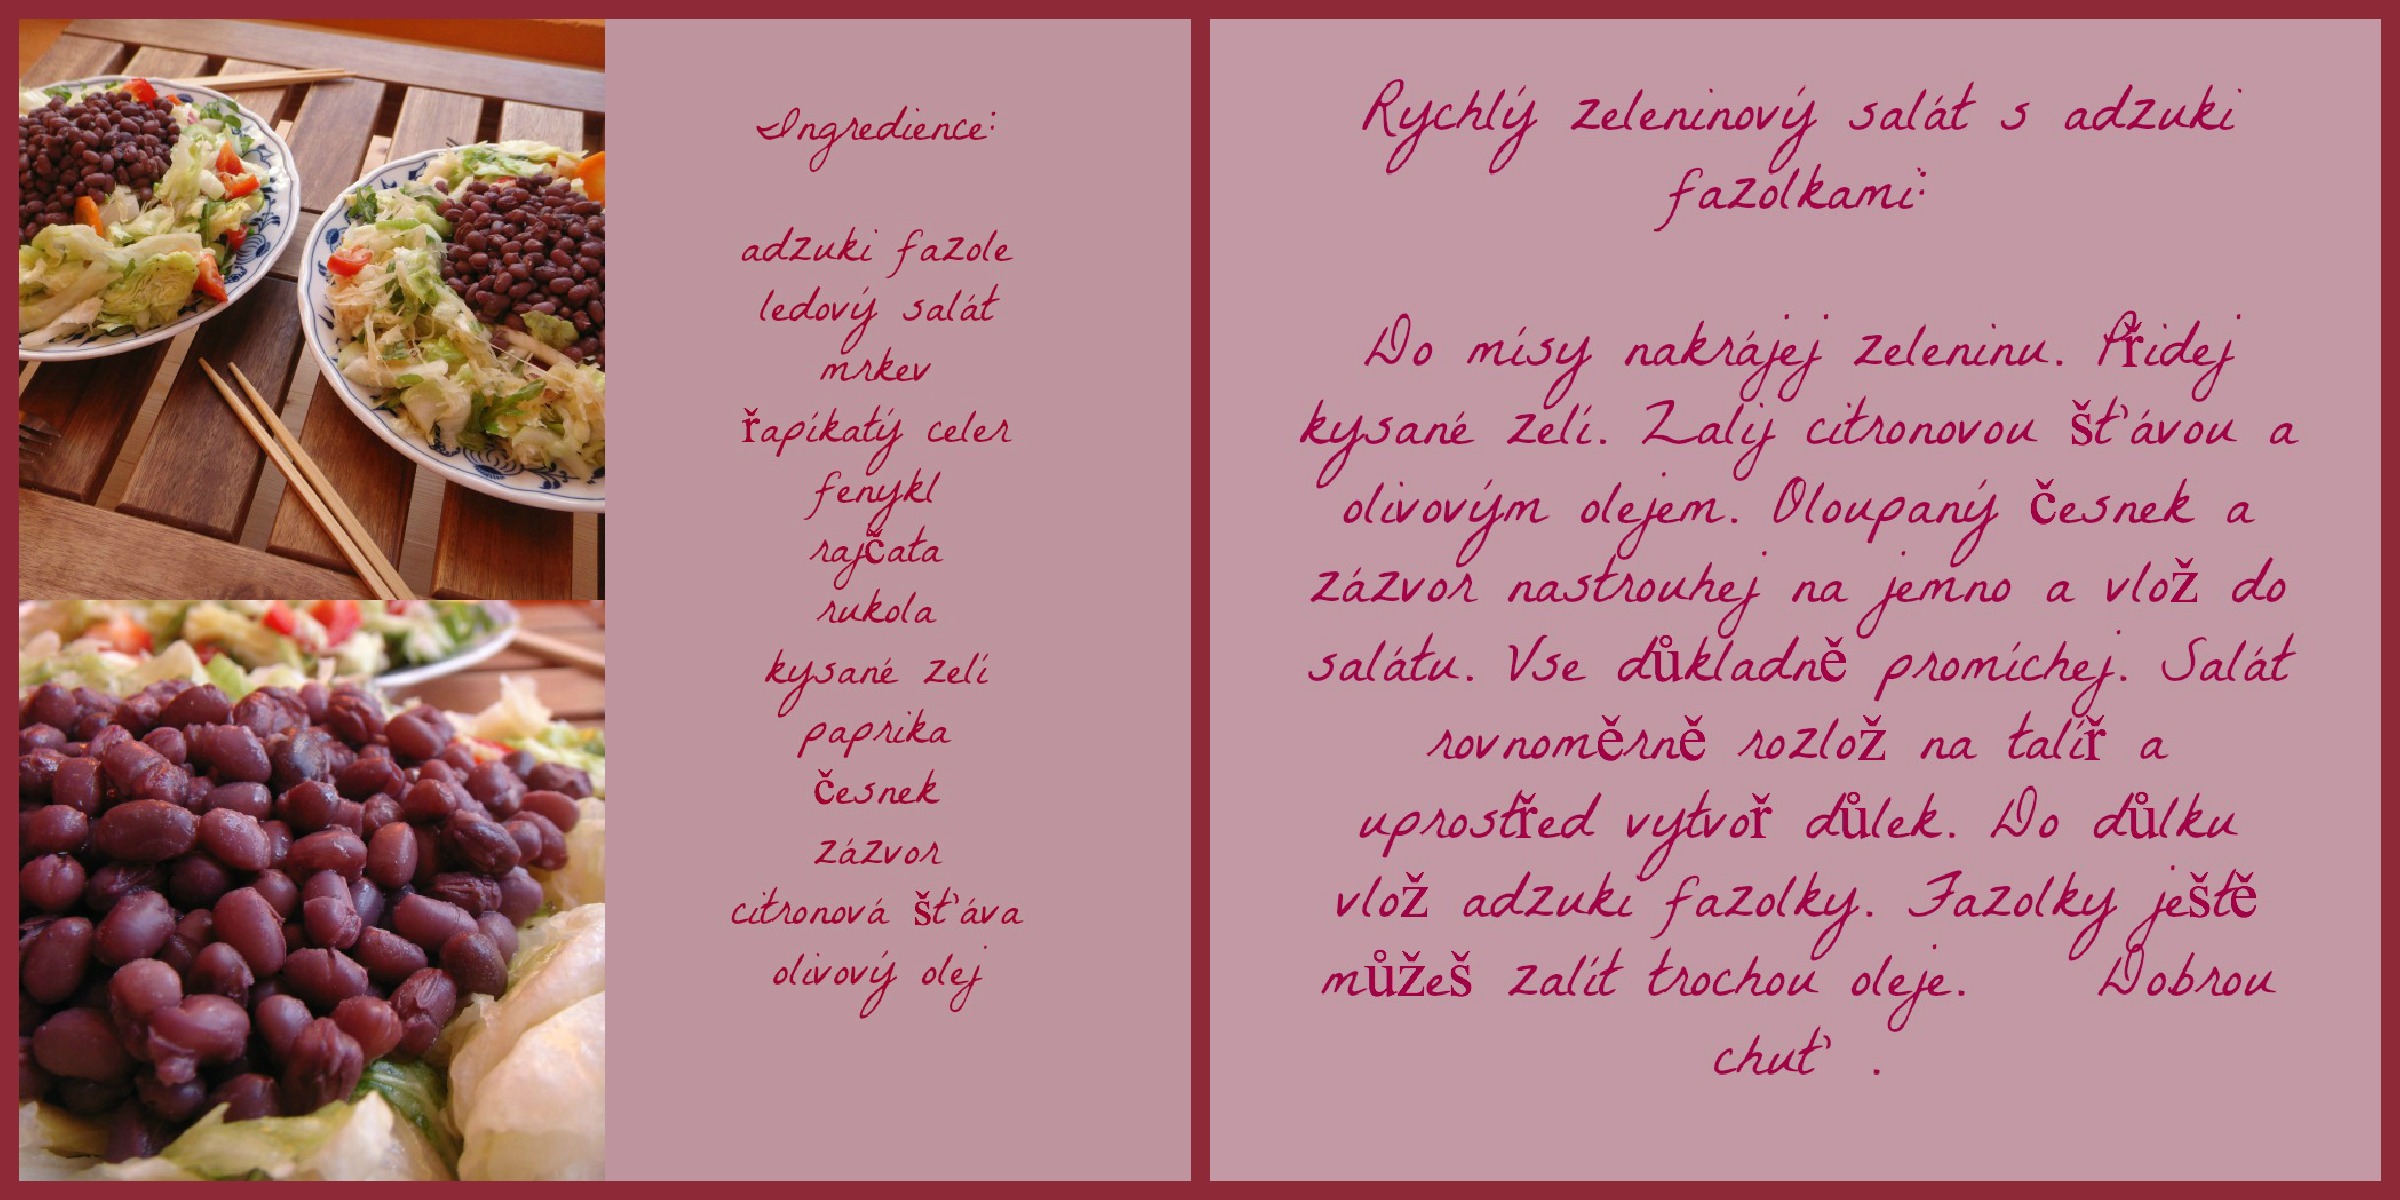 Ingredience:
adzuki fazole
ledový salát
mrkev
řapíkatý celer
fenykl
rajčata
rukola
kysané zelí
paprika
česnek
zázvor
citronová šťáva
olivový olej
Rychlý zeleninový salát s adzuki
fazolkami:
Do mísy nakrájej zeleninu. Přidej
kysané zelí. Zalij citronovou šťávou a
olivovým olejem. Oloupaný česnek a
zázvor nastrouhej na jemno a vlož do
salátu. Vse důkladně promíchej. Salát
rovnoměrně rozlož na talíř a
uprostřed vytvoř důlek. Do důlku
vlož adzuki fazolky. Fazolky ještě
můžeš zalít trochou oleje. Dobrou
chuť .